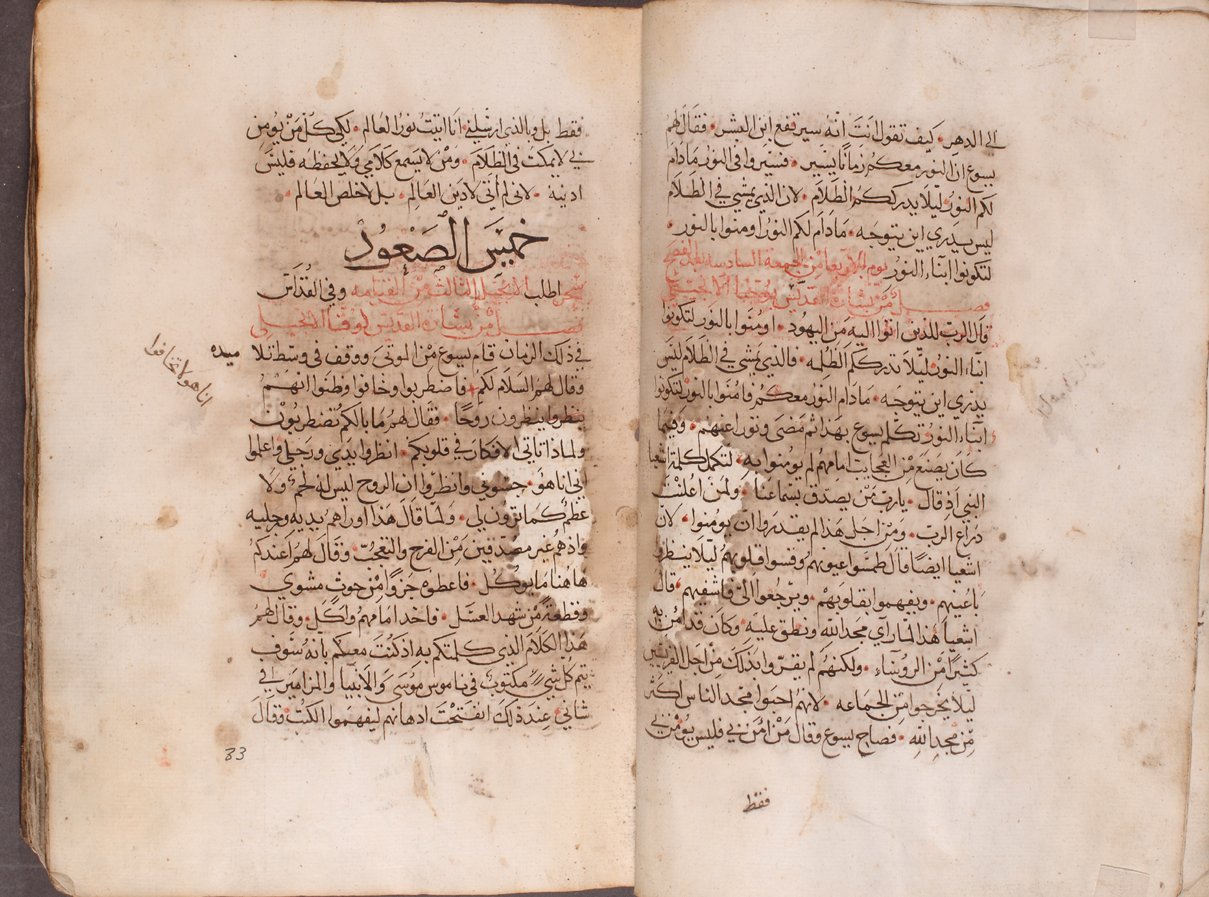 الى الدهر • كيف تقول انت انه سيرتفع ابن البشر • فقال لهم
يسوع ان النور معكم زمانا يسير • فسيروا في النور مادام
لكم النور ليلا يدرككم الظلام • لان الذي يمشي في الظلام
ليس يدري اين يتوجه • مادام لكم النور اومنوا بالنور •
لتكونوا ابناء النور يوم الاربعا من الجمعه السادسه بعد الفصح
فصل من بشارة القديس يوحنا الانجيلي
قال الرب للذين اتوا اليه من اليهود • اومنوا بالنور لتكونوا
ابناء النور ليلا تدرككم الظلمه • فالذي يمشي في الظلام ليس
يدري اين يتوجه • مادام النور معكم فامنوا بالنور لتكونوا
ابناء النور تكلم يسوع بهذا ثم مضى وتورا عنهم • وفيما
كان يصنع من العجايب امامهم لم يومنوا به • لتكمل كلمة اشعيا
النبي اذ قال • يارب من يصدق بسماعنا • ولمن اعلنت
ذراع الرب • ومن اجل هذا لم يقدروا ان يومنوا • لان
اشعيا ايضا قال طمسوا عيونهم وقسوا قلوبهم ليلا ينظروا
باعينهم • ويفهموا بقلوبهم • ويرجعوا الي فاشفيهم • قال
اشعيا هذا لما راي مجد الله ونطق عليه • وكان قد امن به
كثيرا من الروساء • ولكنهم لم يقروا بذلك من اجل الفريسين
ليلا يخرجوا من الجماعه • لانهم احبوا مجد الناس اكثر
من مجد الله • فصاح يسوع وقال من امن بي فليس يومن بي
فقط
فقط بل وبالذي ارسلني • انا اتيت نور العالم • لكي كل من يومن
بي لا يمكث في الظلام • ومن لا يسمع كلامي ولا يحفظه فليس
ادينه • لاني لم اتي لادين العالم • بل لاخلص العالم •
خميس الصعود
سحر اطلب الانجيل الثالث من القيامه وفي القداس
فصل من بشارة القديس لوقا الانجيلي
في ذلك الزمان قام يسوع من الموتى ووقف في وسط تلا
ميده
وقال لهم السلام لكم فاضطربوا وخافوا وظنوا انهم
انا هو لا تخافوا
ينظروا ينظرون روحا • فقال لهم ما بالكم تضطربون
ولماذا تاتي الافكار في قلوبكم • انظروا يدي ورجلي واعلموا
اني انا هو • جسوني وانظروا ان الروح ليس له لحم ولا
عظم كما ترون لي • ولما قال هذا اوراهم يديه ورجليه
واذ هم غير مصدقين من الفرح والتعجب • وقال لهم اعندكم
هاهنا ما يوكل • فاعطوه جزوا من حوت مشوي
وقطعة من شهد العسل • فاخذ امامهم واكل • وقال لهم
هذا الكلام الذي كلمتكم به اذ كنت معكم بانه سوف
يتم كل شي مكتوب في ناموس موسى والانبيا والمزامير في
شاني • عند ذلك انفتحت اذهانهم ليفهموا الكتب وقال
33